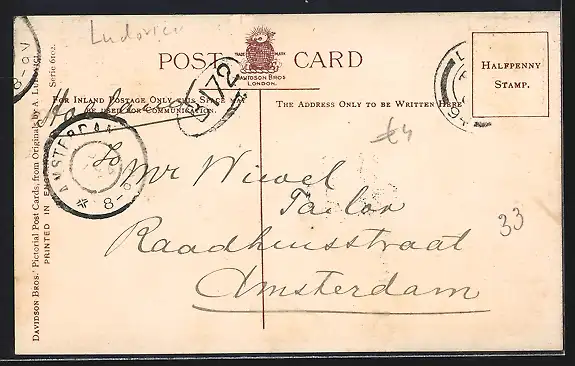 Ludovici
POST CARD
TRADE MARK
DAVIDSON BROS
LONDON.
FOR INLAND POSTAGE ONLY, THIS SPACE MAY
BE USED FOR COMMUNICATION.
THE ADDRESS ONLY TO BE WRITTEN HERE
HALFPENNY
STAMP.
172
£4
AMSTERDAM
8-9
8-9V
To Mr Wiwel
Tailor
Raadhuisstraat
Amsterdam
33
DAVIDSON BROS.' Pictorial Post Cards, from Originals by A. LUDOVICI
Serie 6102.
PRINTED IN ENG